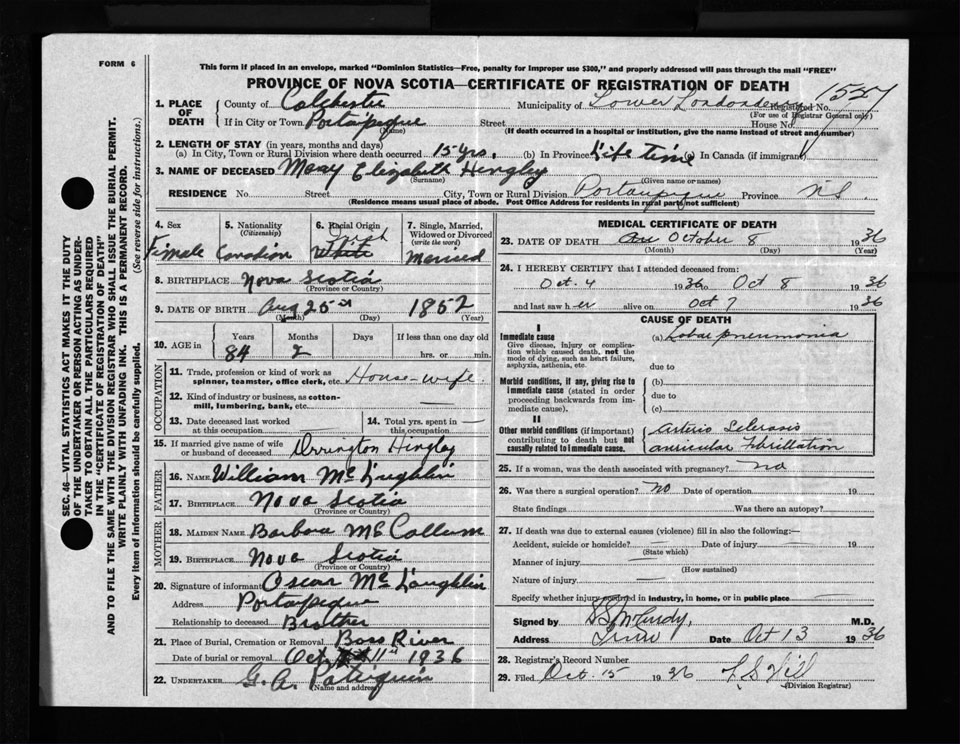 FORM 6
This form if placed in an envelope, marked "Dominion Statistics—Free, penalty for improper use $300," and properly addressed will pass through the mail "FREE"
PROVINCE OF NOVA SCOTIA—CERTIFICATE OF REGISTRATION OF DEATH
1. PLACE OF DEATH
County of Colchester Municipality of Lower Londonderry Registered No. 1557
(For use of Registrar General only)
If in City or Town Portaupique Street House No.
(Name) (If death occurred in a hospital or institution, give the name instead of street and number)
2. LENGTH OF STAY (in years, months and days)
(a) In City, Town or Rural Division where death occurred 15 yrs. (b) In Province Life Time (c) In Canada (if immigrant)
3. NAME OF DECEASED Mary Elizabeth Hingley
(Surname) (Given name or names)
RESIDENCE No. Street City, Town or Rural Division Portaupique Province N.S.
(Residence means usual place of abode. Post Office Address for residents in rural parts not sufficient)
4. Sex Female
5. Nationality (Citizenship) Canadian
6. Racial Origin Scotch White
7. Single, Married, Widowed or Divorced (write the word) Married
8. BIRTHPLACE Nova Scotia
(Province or Country)
9. DATE OF BIRTH Aug 25 1852
(Month) (Day) (Year)
10. AGE in Years 84 Months 2 Days If less than one day old hrs. or min.
OCCUPATION
11. Trade, profession or kind of work as spinner, teamster, office clerk, etc. House-wife.
12. Kind of industry or business, as cotton-mill, lumbering, bank, etc. —
13. Date deceased last worked at this occupation —
14. Total yrs. spent in this occupation —
15. If married give name of wife or husband of deceased Orrington Hingley
FATHER
16. NAME William McLaughlin
17. BIRTHPLACE Nova Scotia
(Province or Country)
MOTHER
18. MAIDEN NAME Barbara McCallum
19. BIRTHPLACE Nova Scotia
(Province or Country)
20. Signature of informant Oscar McLaughlin
Address Portaupique
Relationship to deceased Brother
21. Place of Burial, Cremation or Removal Bass River
Date of burial or removal Oct 11 1936
22. UNDERTAKER G. A. Patriquin
(Name and address)
MEDICAL CERTIFICATE OF DEATH
23. DATE OF DEATH October 8 1936
(Month) (Day) (Year)
24. I HEREBY CERTIFY that I attended deceased from:
Oct. 4 1936 to Oct 8 1936
and last saw her alive on Oct 7 1936
CAUSE OF DEATH
I
Immediate cause
Give disease, injury or complication which caused death, not the mode of dying, such as heart failure, asphyxia, asthenia, etc.
(a) Lobar pneumonia
due to
Morbid conditions, if any, giving rise to immediate cause (stated in order proceeding backwards from immediate cause).
(b)
due to
(c)
II
Other morbid conditions (if important) contributing to death but not causally related to immediate cause.
Arterio Sclerosis
auricular Fibrillation
25. If a woman, was the death associated with pregnancy? no
26. Was there a surgical operation? no Date of operation 19
State findings Was there an autopsy?
27. If death was due to external causes (violence) fill in also the following:—
Accident, suicide or homicide? — Date of injury — 19
(State which)
Manner of injury —
(How sustained)
Nature of injury —
Specify whether injury occurred in industry, in home, or in public place —
Signed by M.D.
Address Truro Date Oct 13 1936
28. Registrar's Record Number
29. Filed Oct. 15 1936
(Division Registrar)
SEC. 46—VITAL STATISTICS ACT MAKES IT THE DUTY
OF THE UNDERTAKER OR PERSON ACTING AS UNDERTAKER TO OBTAIN ALL THE PARTICULARS REQUIRED
IN THE "CERTIFICATE OF REGISTRATION OF DEATH"
AND TO FILE THE SAME WITH THE DIVISION REGISTRAR WHO SHALL ISSUE THE BURIAL PERMIT.
WRITE PLAINLY WITH UNFADING INK. THIS IS A PERMANENT RECORD.
Every item of information should be carefully supplied. (See reverse side for instructions.)